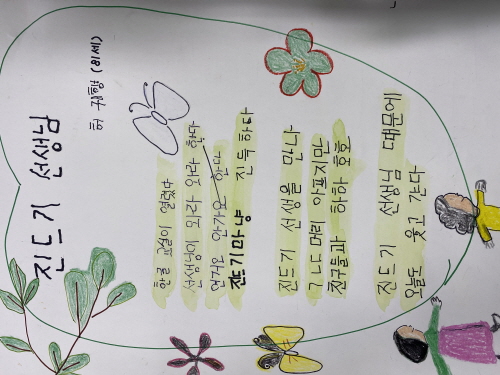 진드기 선생님
허 귀형 (81세)
한글 교실이 열렸다
선생님이 와라 와라 한다
안가요 안가요 한다
진드기마냥 진득하다
진드기 선생을 만나
ㄱㄴㄷ 머리 아프지만
친구들과 하하 호호
진드기 선생님 때문에
오늘도 웃고 간다